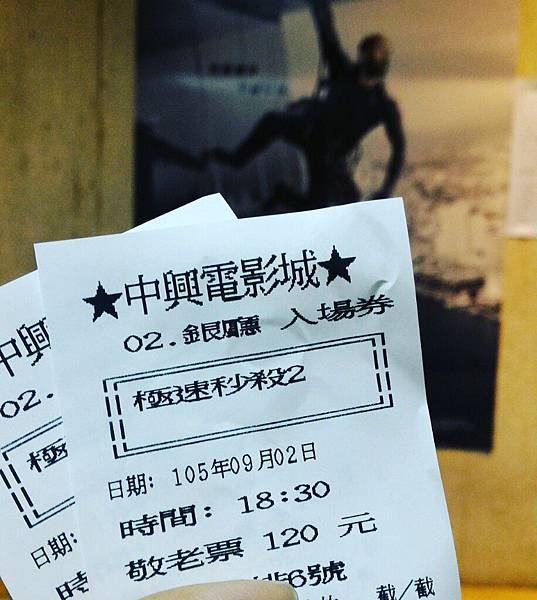 ★中興電影城★
02.銀廳 入場券
極速秒殺2
日期: 105年09月02日
時間: 18:30
敬老票 120 元
排6號
截/截
中興
02.
極
日期:
時